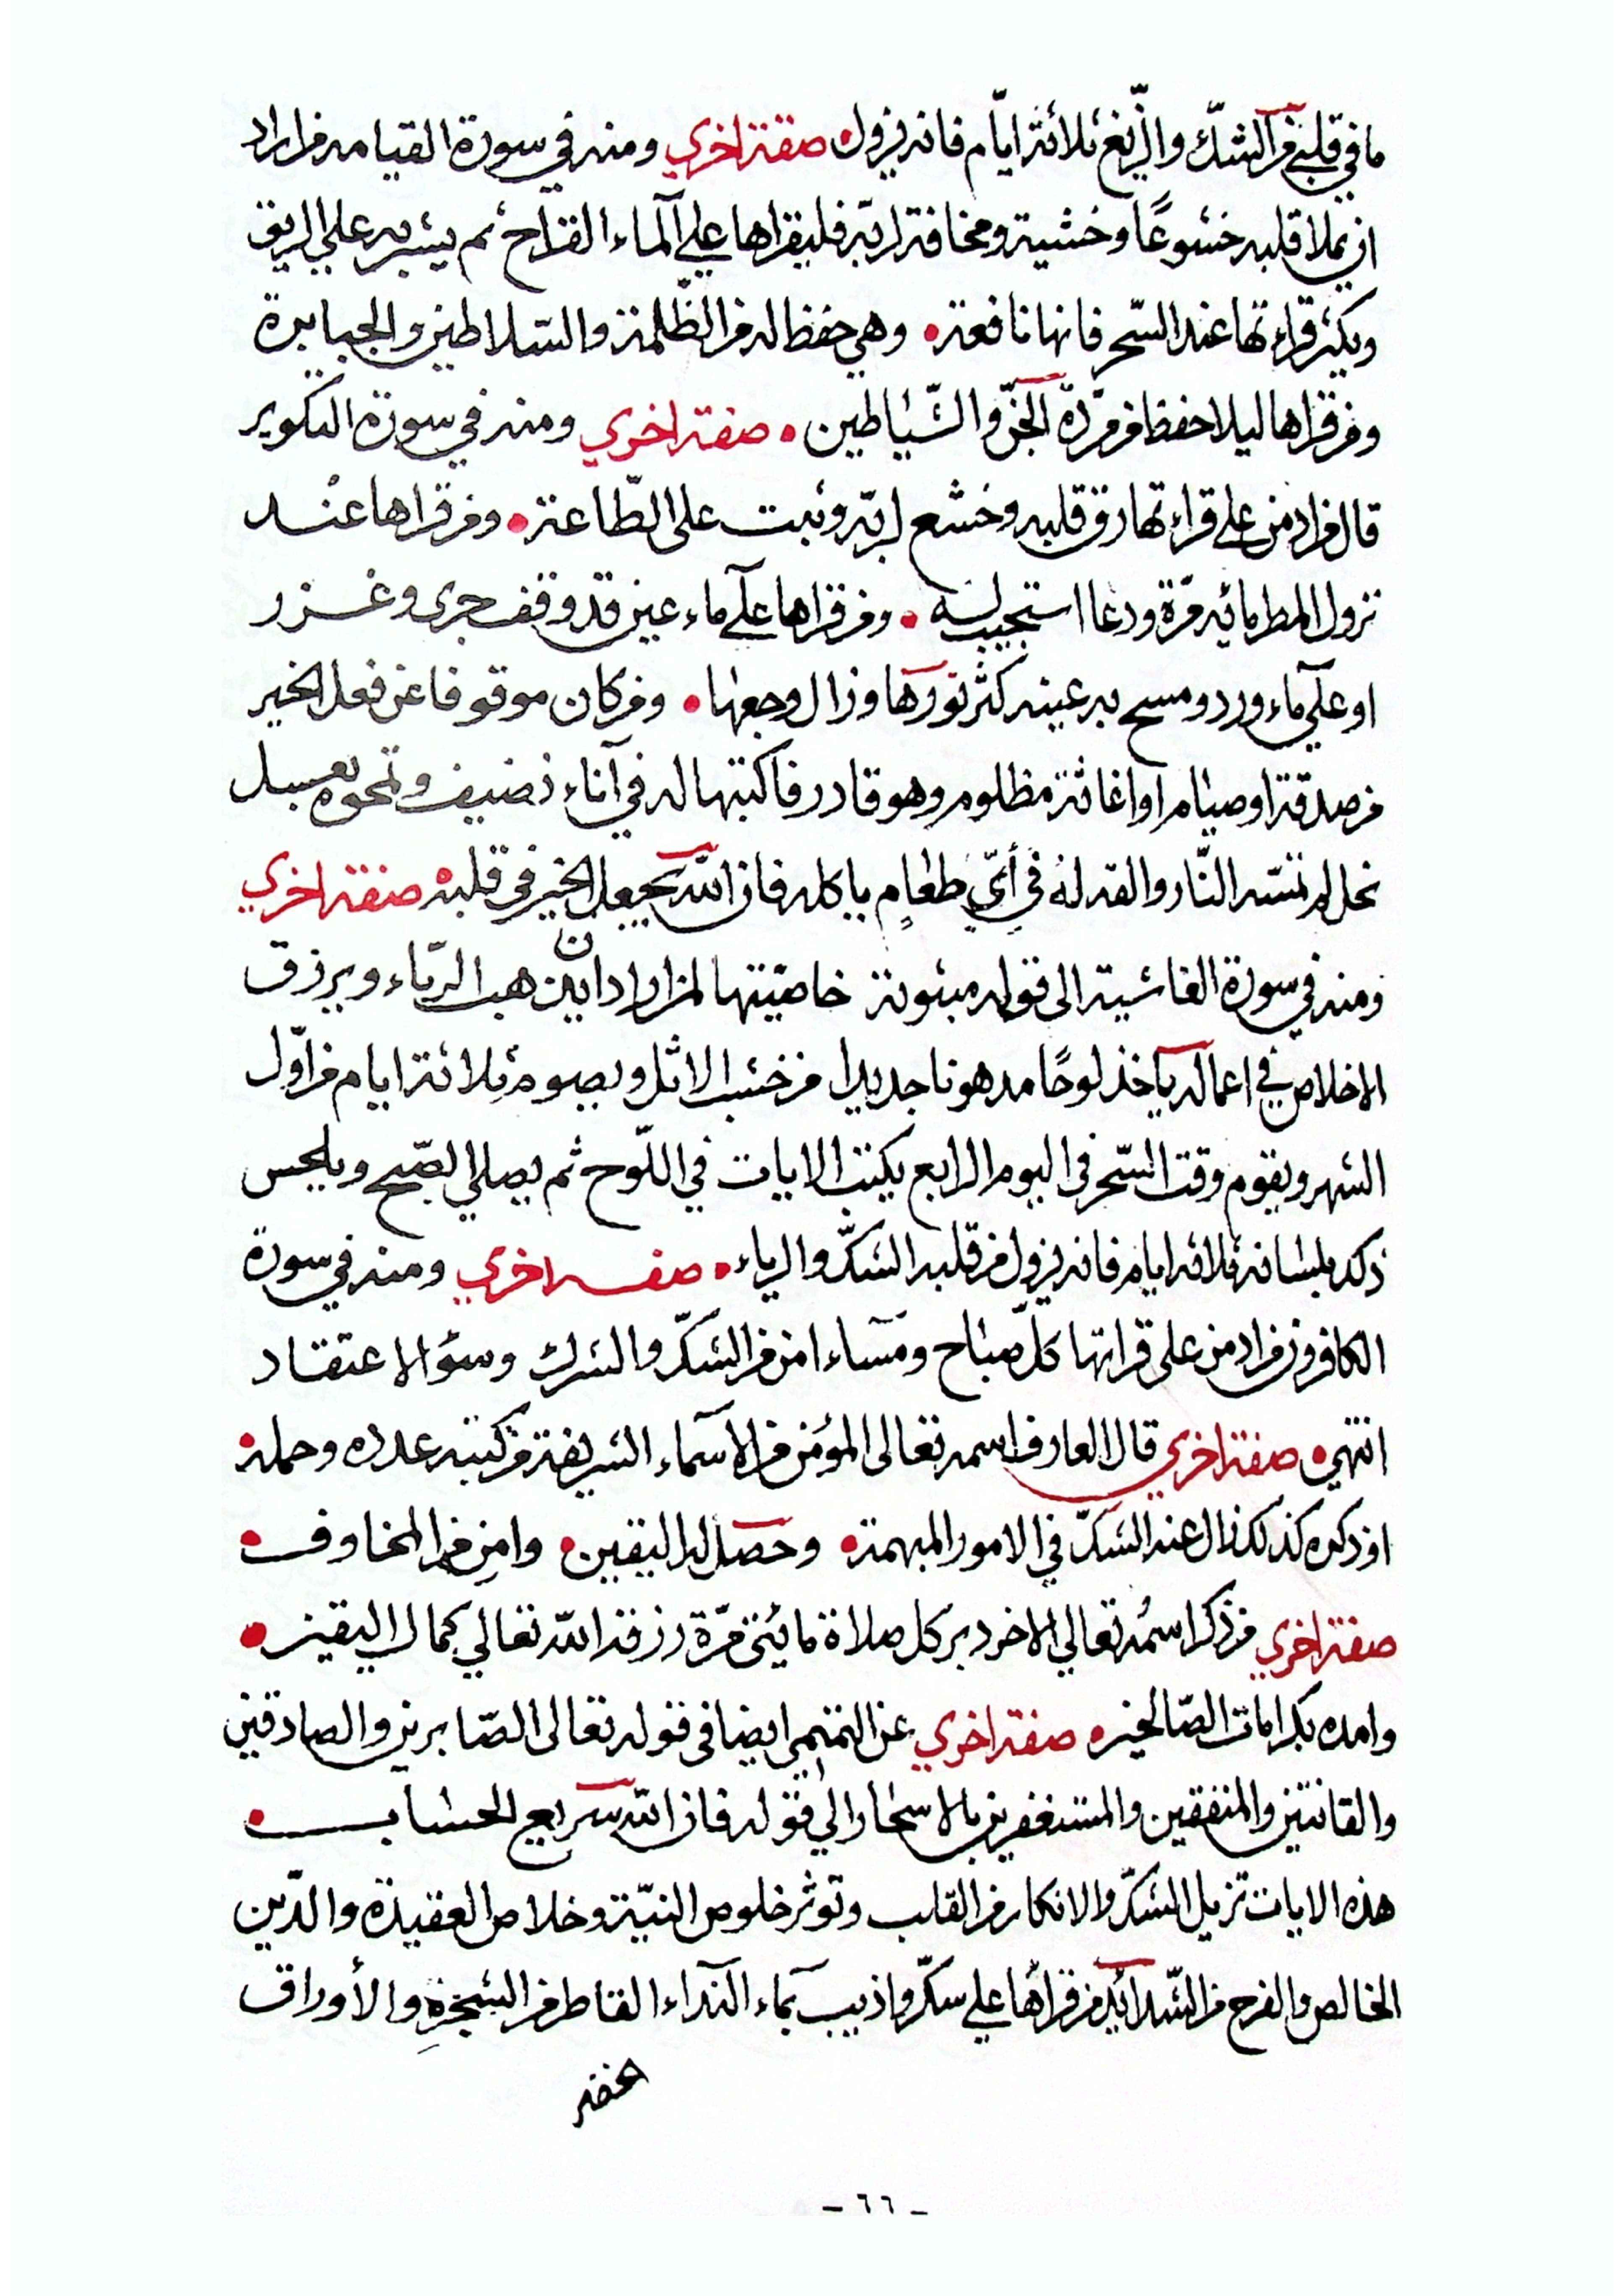 ما في قلبه من الشك والزيغ ثلاثة ايام فانه يزول صفة اخري ومنه في سورة القيامة من اراد
ان يملا قلبه خشوعًا وخشية ومخافة لربه فليقراها علي الماء القراح ثم يشربه علي الريق
ويكثر قراءتها عند السحر فانها نافعة • وهي حفظ له من الظلمة والسلاطين والجبابرة
ومن قراها ليلا حفظ من مردة الجن والشياطين • صفة اخري ومنه في سورة التكوير
قال من ادمن علي قراءتها رق قلبه وخشع لربه وثبت على الطاعة • ومن قراها عند
نزول المطر مائة مرة ودعا استجيب له • ومن قراها علي ماء عين قد وقف جرى وغزر
او علي ماء ورد ومسح به عينه كثر نورها وزال وجعها • ومن كان موقوفا عن فعل الخير
من صدقة او صيام او اغاثة مظلوم وهو قادر فاكتبها له في آناء نضيف وتمحوه بعسل
نحل لم تمسه النار والقه له في أيّ طعامٍ ياكله فان الله يجعل الخير في قلبه صفة اخري
ومنه في سورة الغاشية الى قوله مبثوثة خاصيتها لمن اراد ان يذهب الرياء ويرزق
الاخلاص في اعماله ياخذ لوحًا مدهونا جديدا من خشب الاثل ويصوم ثلاثة ايام من اوّل
الشهر ويقوم وقت السحر في اليوم الرابع يكتب الايات في اللوح ثم يصلي الصبح ويلحس
ذلك بلسانه ثلاثة ايام فانه يزول من قلبه الشك والرياء • صفة اخري ومنه في سورة
الكافرون من ادمن على قراتها كل صباح ومساء امن من الشك والشرك وسؤ الاعتقاد
انتهي • صفة اخري قال العارف اسمه تعالى المؤمن من الاسماء الشريفة من كتبه عدده وحمله •
او ذكره كذلك زال عنه الشك في الامور المبهمة • وحصل له اليقين • وامن من المخاوف •
صفة اخري من ذكر اسمُه تعالي الاخر دبر كل صلاة مائتى مرّة رزقه الله تعالي كمال اليقين •
وامده بكرامات الصالحين • صفة اخري عن التميمي ايضا فى قوله تعالى الصابرين والصادقين
والقانتين والمنفقين والمستغفرين بالاسحار الي قوله فان الله سريع الحساب •
هذه الايات تزيل الشك والانكار من القلب وتوثر خلوص النيّة وخلاص العقيدة والدّين
الخالص والفرح من الشدائد من قرأها علي سكر واذيب بماء النداء القاطر من الشجرة والأوراق
- ٦٦ -